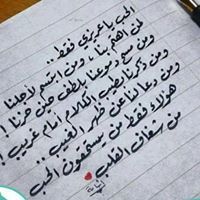 الحب يا عزيزي فقط..
لمن اهتم بنا، ومن ابتسم لأجلنا
ومن مسح دموعنا بلطف حين حزننا!
ومن ذكرنا بطيب الكلام أمام غريب!
ومن دعا لنا عن ظهر الغيب..
هؤلاء فقط من يستحقون الحب
من شغاف القلب